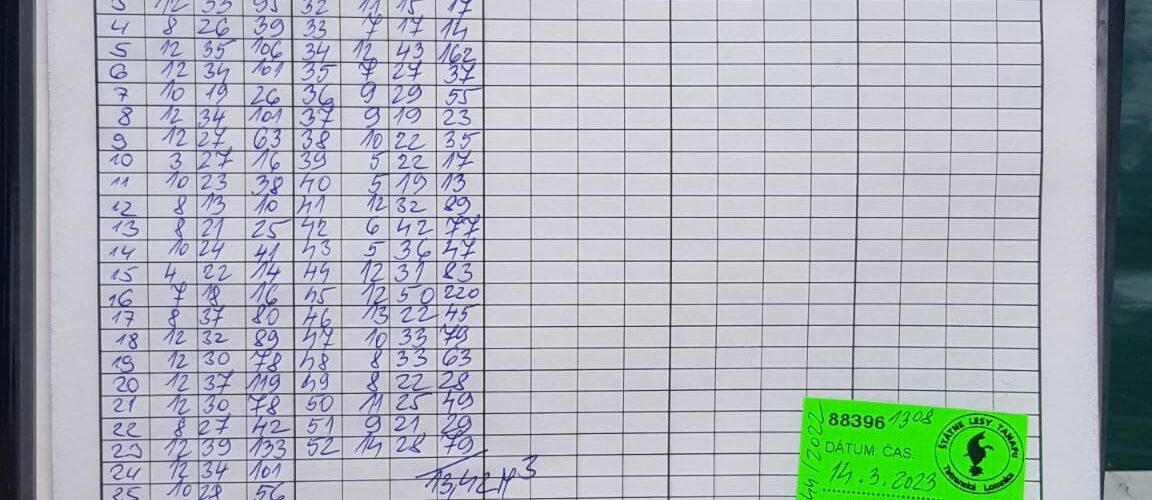 3 12 33 95 32 11 15 17
4 8 26 39 33 7 17 14
5 12 35 106 34 12 43 162
6 12 34 101 35 7 27 37
7 10 19 26 36 9 29 55
8 12 34 101 37 9 19 23
9 12 27 63 38 10 22 35
10 3 27 16 39 5 22 17
11 10 23 38 40 5 19 13
12 8 13 10 41 12 32 89
13 8 21 25 42 6 42 77
14 10 24 41 43 5 36 47
15 4 22 14 44 12 31 83
16 7 18 16 45 12 50 220
17 8 37 80 46 13 22 45
18 12 32 89 47 10 33 79
19 12 30 78 48 8 33 63
20 12 37 119 49 8 22 28
21 12 30 78 50 11 25 49
22 8 27 42 51 9 21 29
23 12 39 133 52 14 28 79
24 12 34 101
25 10 28 56
13,42 m3
88396 1308
DÁTUM, ČAS:
14.3.2023
44/2022
ŠTÁTNE LESY TANAPU
Tatranská Lomnica